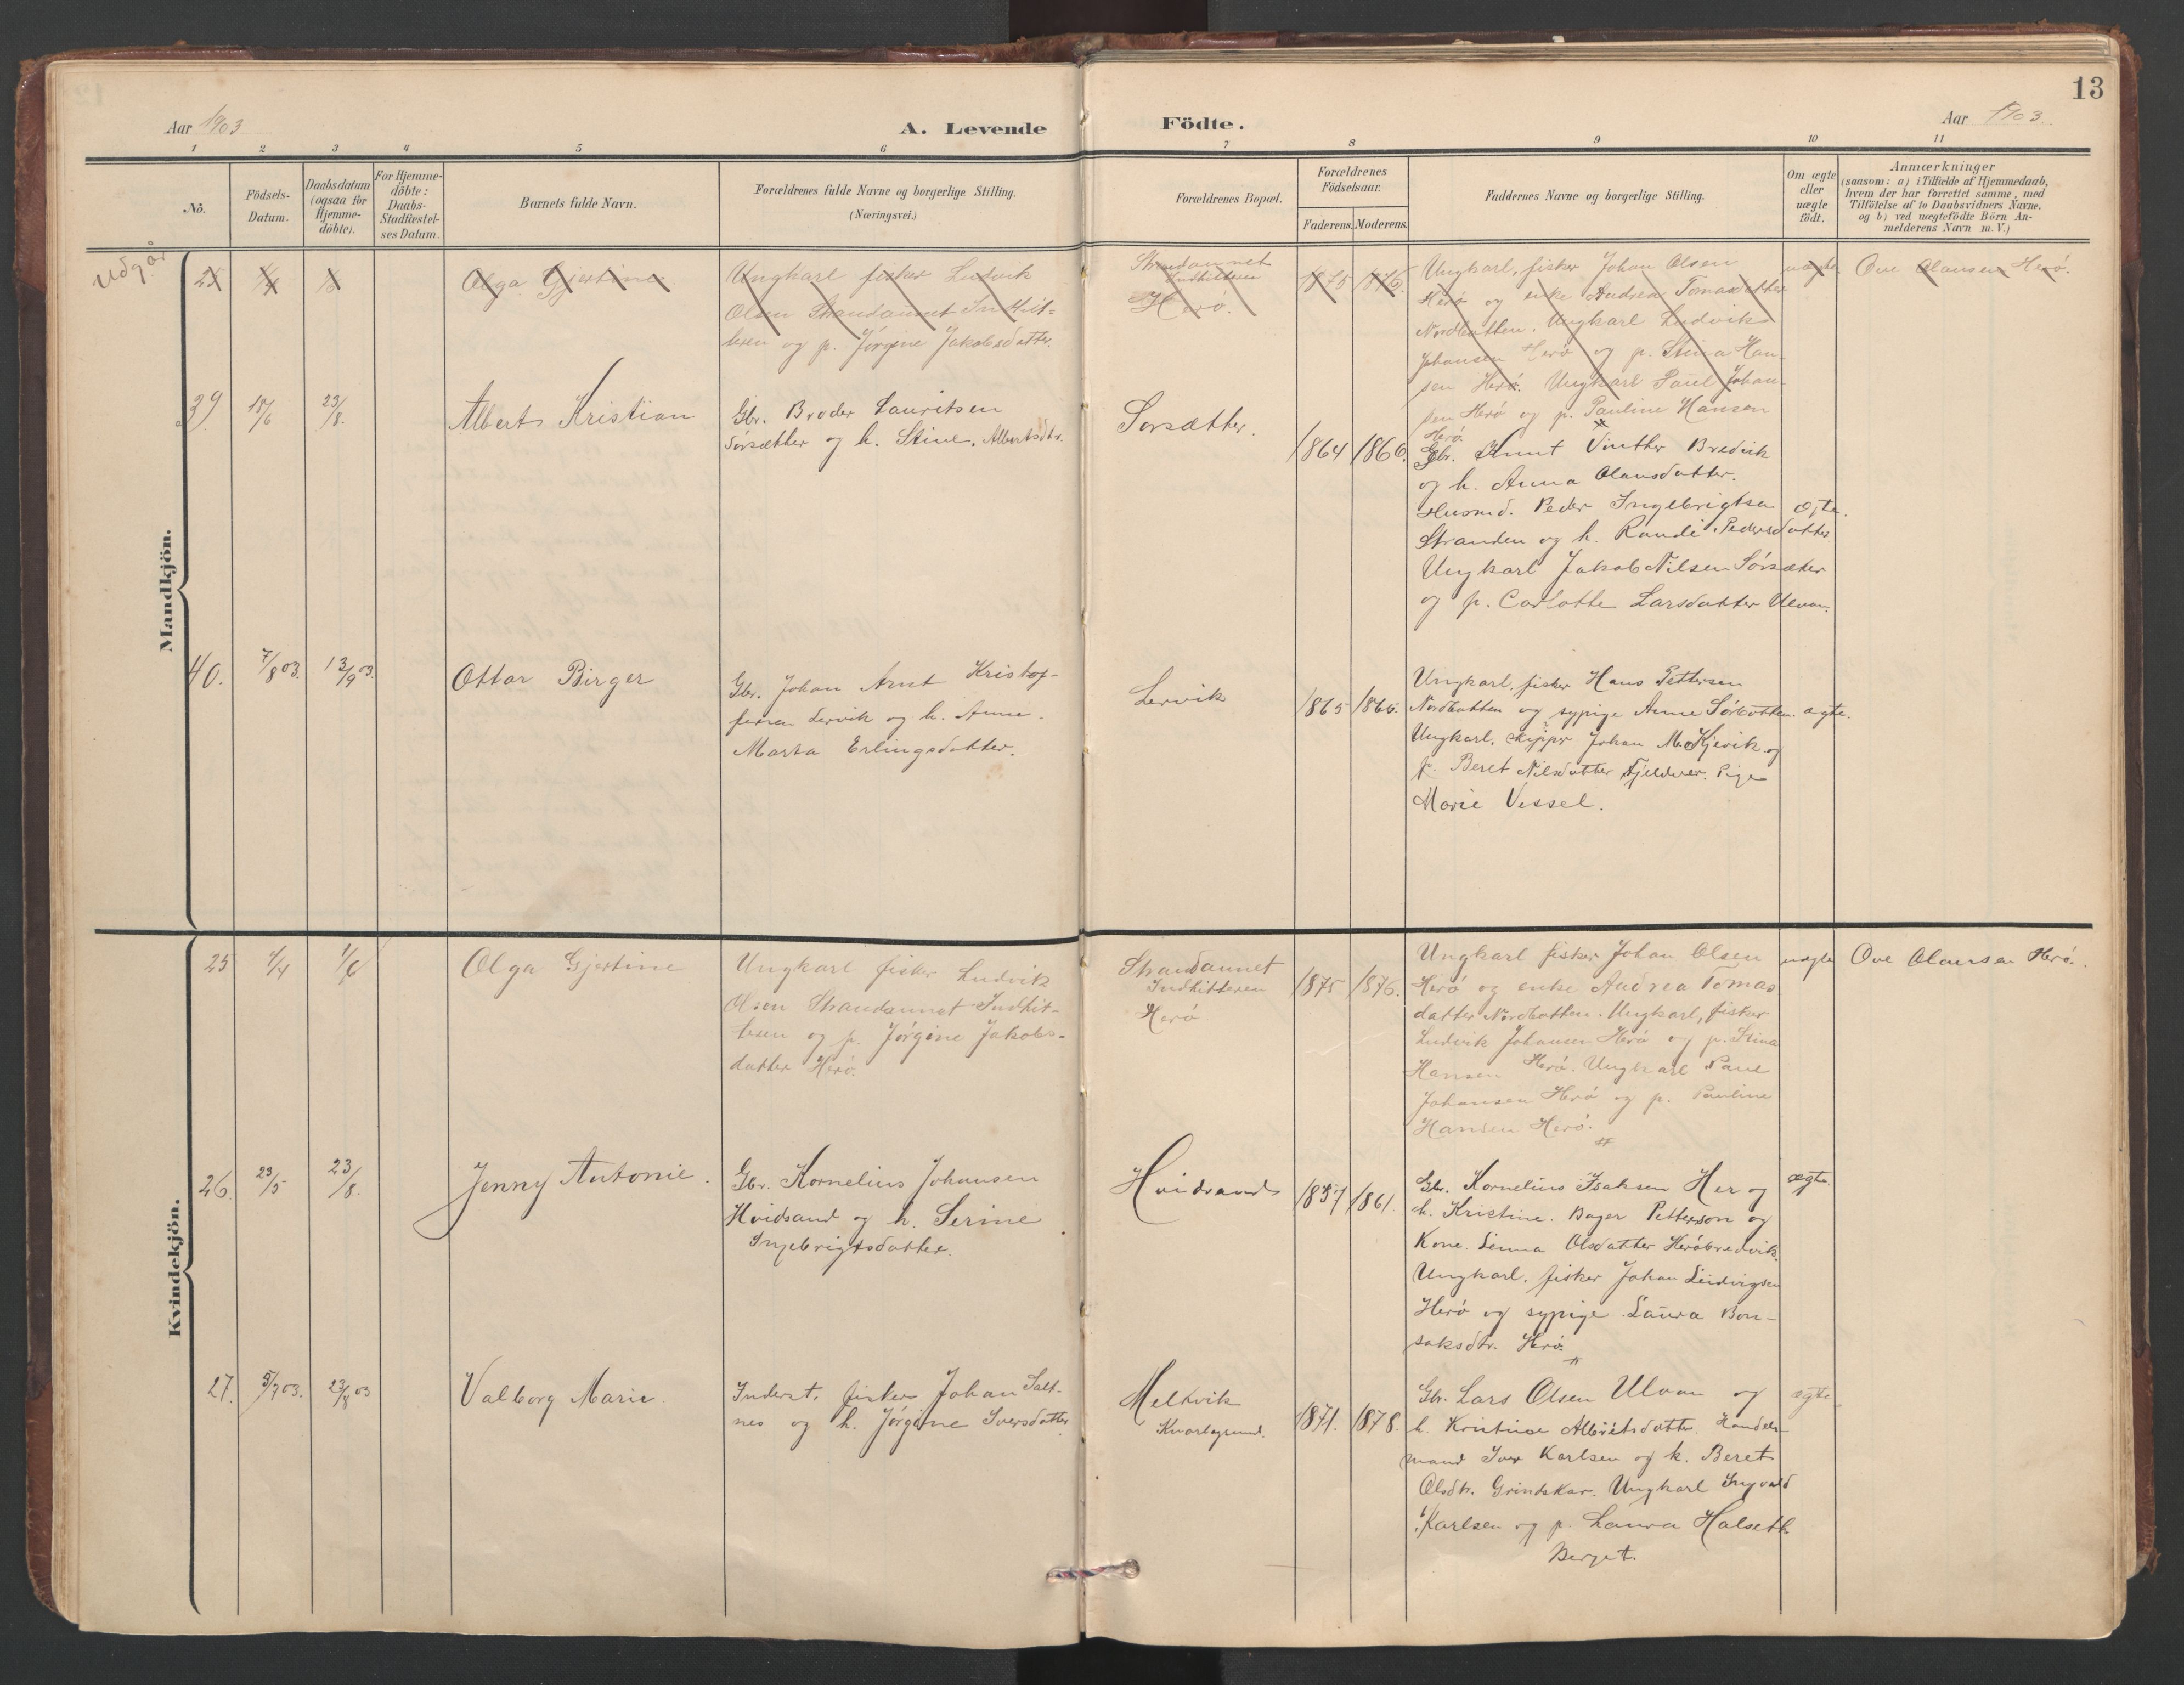 13
Aar 1903
A. Levende
Födte.
Aar 1903.
1 2 3 4 5 6 7 8 9 10 11
No.
Födsels-
Datum.
Daabsdatum
(ogsaa for
Hjemme-
döbte).
For Hjemme-
döbte:
Daabs-
Stadfæstel-
ses Datum.
Barnets fulde Navn.
Forældrenes fulde Navne og borgerlige Stilling.
(Næringsvei.)
Forældrenes Bopæl.
Forældrenes
Födselsaar.
Faderens. Moderens.
Faddernes Navne og borgerlige Stilling.
Om ægte
eller
uægte
födt.
Anmærkninger
(saasom: a) i Tilfælde af Hjemmedaab,
hvem der har forrettet samme, med
Tilföielse af to Daabsvidners Navne,
og b) ved uægtefödte Börn An-
melderens Navn m. V.)
Mandkjön.
Udgår
25
Olga Gjertine
Ungkarl fisker Ludvik
Olsen Strandaunet Indhit-
teren og p. Jörgine Jakobsdatter.
Strandaunet
Indhitteren
Herö.
1875 1876.
Ungkarl, fisker Johan Olsen
Herö og enke Andrea Tomasdatter
Nordbotten. Ungkarl Ludvik
Johansen Herö og p. Stina Han-
sen Herö. Ungkarl Paul Johan-
sen Herö og p. Pauline Hansen
Herö.
uægte.
Ove Olausen Herö.
39. 18/6 23/8.
Albert Kristian
Gbr. Broder Lauritsen
Sörsætter og h. Stine. Albertsdtr.
Sorsætter.
1864 1866.
Gbr. Knut Vinther Bredvik
og h. Anna Olausdatter.
Husmd. Peder Ingebrigtsen
Stranden og h. Randi Pedersdatter.
Ungkarl Jakob Nilsen Sörsæter
og p. Carlotte Larsdatter Ulvan.
ægte.
40. 7/8 03. 13/9 03.
Ottar Birger
Gbr. Johan Arnt Kristof-
fersen Lervik og h. Anne
Marta Erlingsdatter.
Lervik
1865 1865.
Ungkarl, fisker Hans Pettersen
Nordbotten og sypige Anne Sörbotten.
Ungkarl, skipper Johan M. Kjervik og
p. Beret Nilsdatter Fjeldvær. Pige
Marie Vessel.
ægte.
Kvindekjön.
25 4/4 1/6
Olga Gjertine
Ungkarl fisker Ludvik
Olsen Strandaunet Indhit-
teren og p. Jörgine Jakobs-
datter Herö.
Strandaunet
Indhitteren
Herö
1875 1876.
Ungkarl fisker Johan Olsen
Herö og enke Andrea Tomas
datter Nordbotten. Ungkarl, fisker
Ludvik Johansen Herö og p. Stina
Hansen Herö. Ungkarl Paul
Johansen Herö og p. Pauline
Hansen Herö.
uægte
Ove Olausen Herö.
26. 23/5 23/8.
Jenny Antonie.
Gbr. Kornelius Johansen
Hvidsand og h. Serine
Ingebrigtsdatter.
Hvidsand
1857 1861.
Gbr. Kornelius Isaksen Her og
h. Kristine. Bager Petterson og
Kone. Linna Olsdatter Heröbredvik.
Ungkarl, fisker Johan Ludvigsen
Herö og sypige Laura Bon-
saksdtr. Herö.
ægte.
27. 5/7 03. 23/8 03
Valborg Marie
Inderst. fisker Johan Salt-
nes og h. Jörgine Iversdatter.
Melkvik
Kvarlegrund.
1871. 1878.
Gbr. Lars Olsen Ulvan og
h. Kristine Albretsdatter. Handels-
mand Iver Karlsen og h. Beret
Olsdtr. Grindskar. Ungkarl Ingvald
Karlsen og p. Laura Halseth
Berget.
ægte